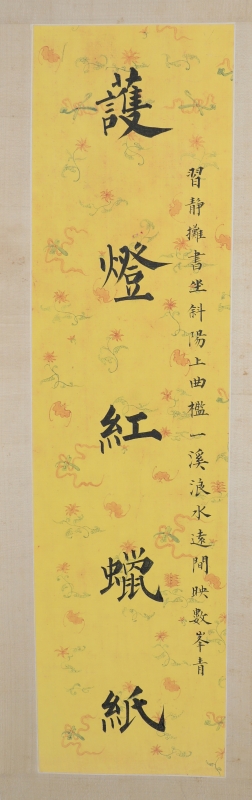 習靜攤書坐斜陽上曲檻一溪浪水遠間映數峯青
護燈紅蠟紙